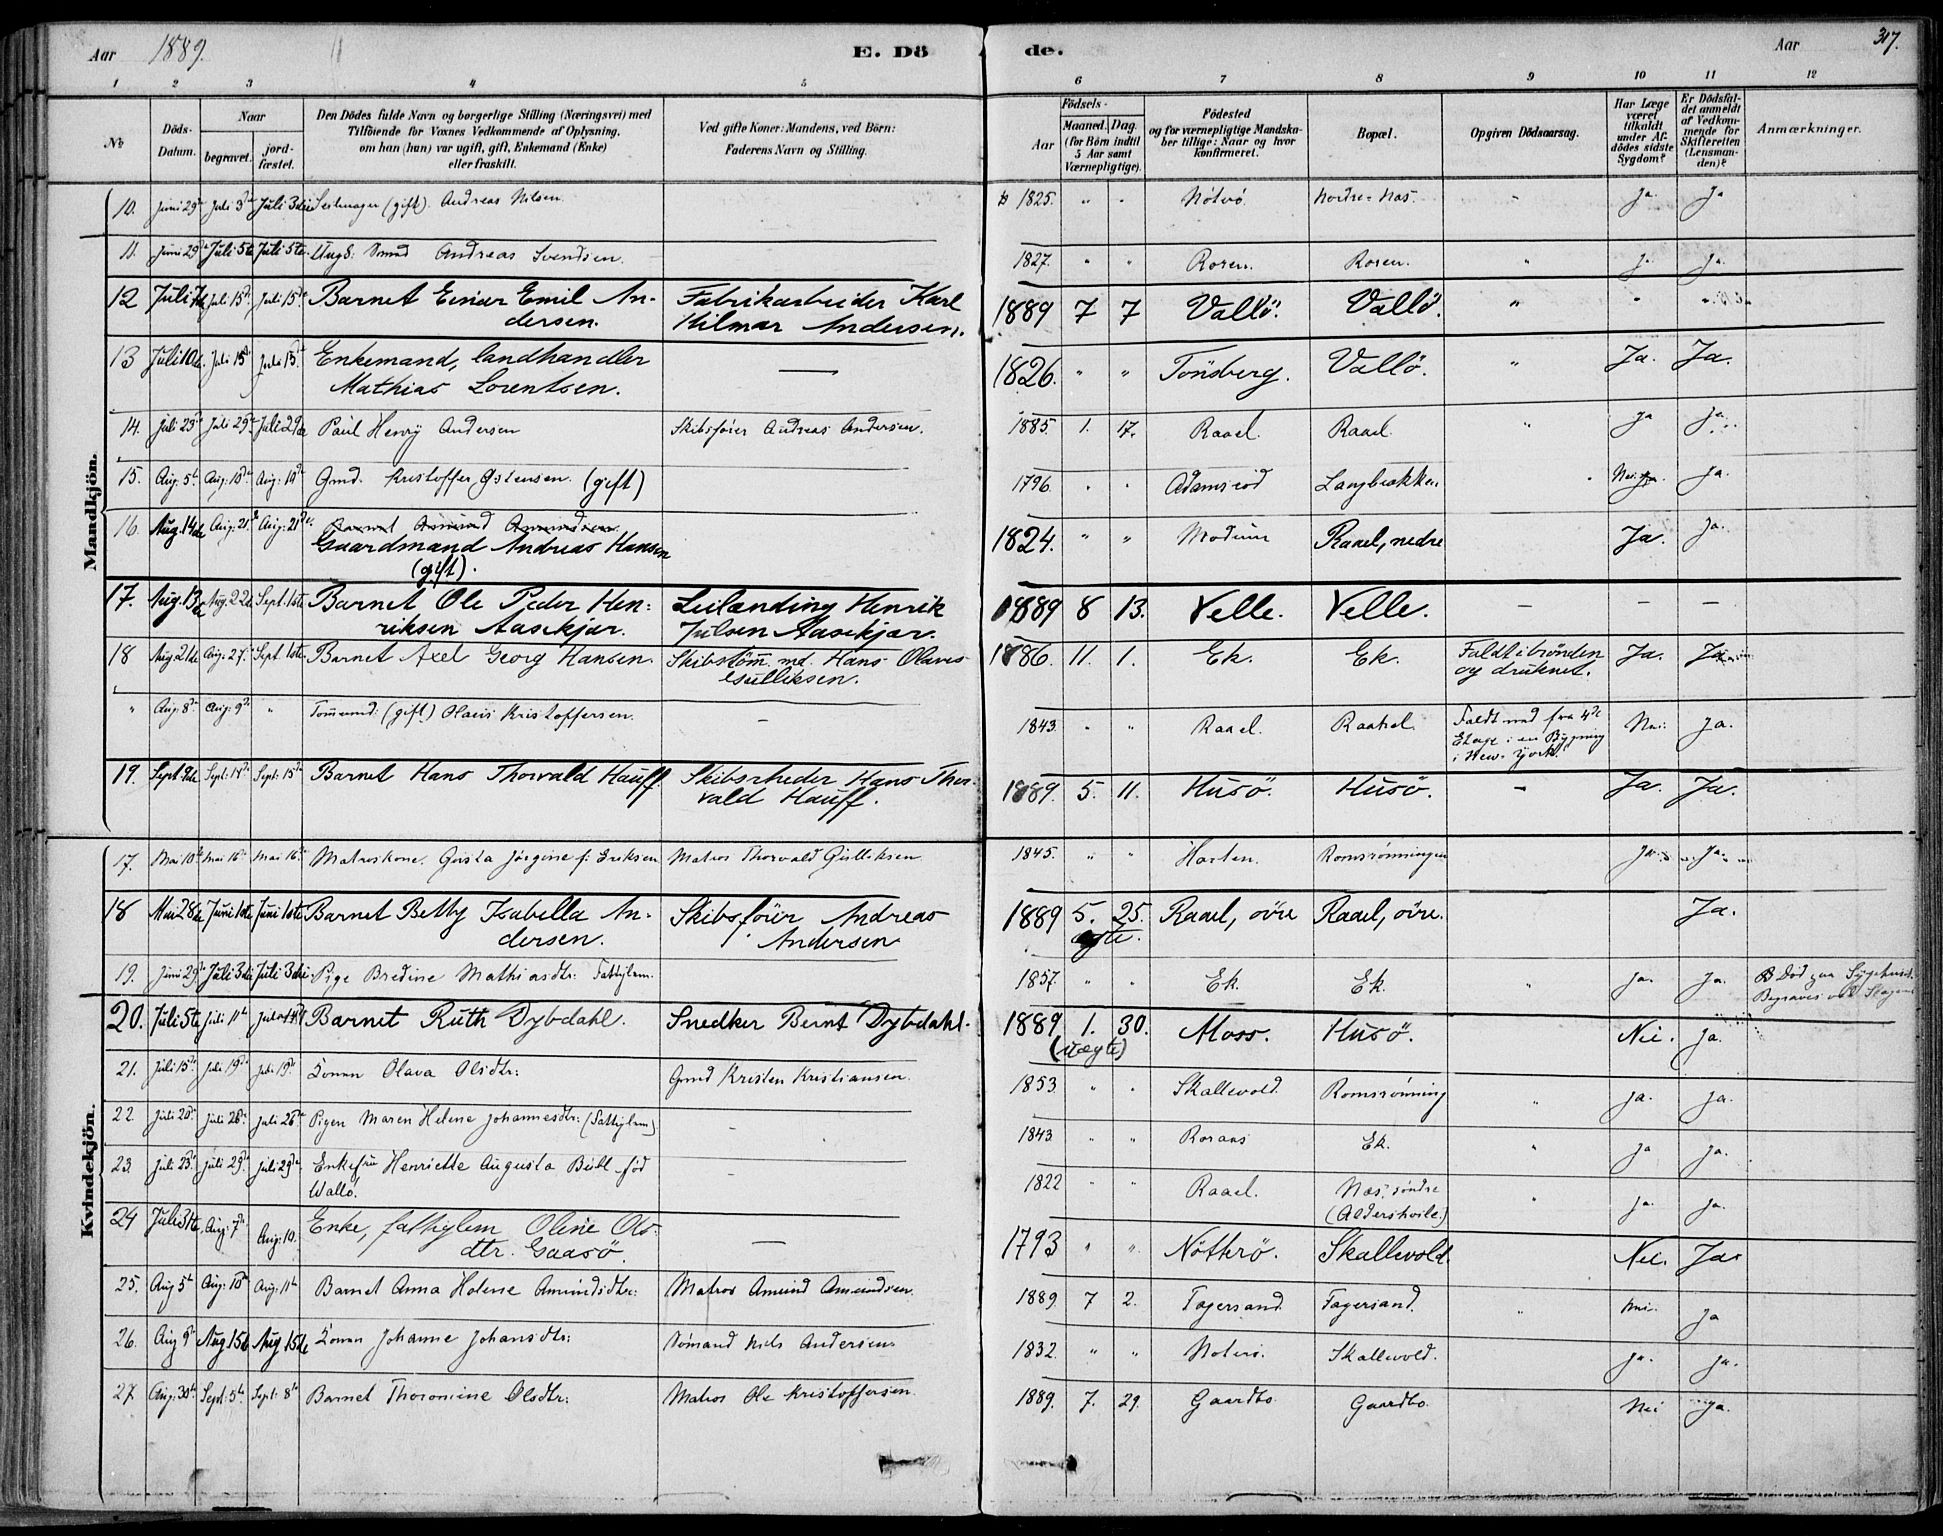 Aar 1889. E. Dö de. Aar 317.
1 2 3 4 5 6 7 8 9 10 11 12
№ Döds-Datum. Naar begravet. jordfæstet. Den Dödes fulde Navn og borgerlige Stilling (Næringsvei) med Tilföiende for Voxnes Vedkommende af Oplysning, om han (hun) var ugift, gift, Enkemand (Enke) eller fraskilt. Ved gifte Koner: Mandens, ved Börn: Faderens Navn og Stilling. Födsels- Aar Maaned. Dag. (for Börn indtil 5 Aar samt Værnepligtige). Födested og for værnepligtige Mandskaber tillige: Naar og hvor konfirmeret. Bopæl. Opgiven Dödsaarsag. Har Læge været tilkaldt under Afdödes sidste Sygdom? Er Dödsfaldet anmeldt af Vedkommende for Skifteretten (Lensmanden)? Anmærkninger.
Mandkjön.
10. Juni 29de Juli 3die Juli 3die Seilmager (gift) Andreas Nilsen 1825. " " Nöterö Nordre-Næs. " Ja Ja
11. Juni 29de Juli 5te Juli 5te Andreas Svendsen. 1827. " " Roren. Roren. " Ja Ja.
12 Juli 7de Juli 15de Juli 15de Barnet Einar Emil Andersen. Fabrikarbeider Karl Hilmar Andersen. 1889 7 7 Vallö. Vallö. " "
13 Juli 10de. Juli 15de Juli 15de Enkemand, landhandler Mathias Lorentsen. — 1826. " " Tönsberg. Vallö. " Ja. Ja.
14. Juli 23de Juli 29de Juli 29de Paul Henry Andersen Skibsförer Andreas Andersen. 1885. 1. 17. Raael. Raael. " Ja Ja.
15. Aug: 5te Aug: 10de Aug: 10de Gmd. Kristoffer Östensen. (gift) 1796. " " Adamsröd Langbrækken. Nei. Ja.
16. Aug. 14de Aug: 21de Aug: 21de Barnet Amund Amundsen Gaardmand Andreas Hansen (gift). 1824. " " Modum Raael, nedre Ja. Ja.
17. Aug. 13de Aug. 22de Sept. 1ste Barnet Ole Peder Henriksen Aasekjær. Leilænding Henrik Julsen Aasekjær. 1889 8 13. Velle. Velle. — — —
18 Aug. 21de Aug: 27. Sept 1ste Barnet Axel Georg Hansen. Skibstömmd. Hans Olaves Gulliksen. 1886. 11. 1. Ek. Ek. Faldt i brönden og druknet. Ja. Ja
" Aug: 8de Aug: 9de " Tömmd: (gift) Olaus Kristoffersen. — 1843 " " Raael. Raael. Faldt ned fra 4de Etage i en Bygning i New-York. Nei: Ja.
19. Sept 9de Sept: 14de Sept: 15de Barnet Hans Thorvald Hauff. Skibsrheder Hans Thorvald Hauff. 1889. 5. 11. Husö. Husö. — Ja. Ja.
Kvindekjön.
17. Mai 10de Mai 16de Mai 16de Matroskone. Gusta Jörgine f: Eriksen Matros Thorvald Gulliksen 1845. " " Horten. Romsrönningen Ja. Ja.
18 Mai 28de Juni 1ste Juni 1ste Barnet Betty Isabella Andersen. Skibsförer Andreas Andersen 1889 5. 25. ægte. Raael, övre Raael, övre. Ja.
19. Juni 29de Juli 3die Juli 3die Pige Bredine Mathiasdtr: Fattiglem. 1857. " " Ek. Ek. " Ja. Ja. Död paa Sygehuset. Begraves ved Slagen
20. Juli 5te Juli 11te Juli 14de Barnet Ruth Dybdahl. Snedker Bernt Dybdahl. 1889 1. 30. (uægte) Moss. Husö. Nei. Ja.
21. Juli 15de Juli 19de Juli 19de Konen Olava Olsdtr: Gmd Kristen Kristiansen. 1853 " " Skallevold. Romsrönning " Ja. Ja.
22. Juli 20de Juli 26de Juli 26de Pigen Maren Helene Johannesdtr: (Fattiglem) - 1843 " " Roraas Ek. " Ja Ja.
23. Juli 23de Juli 29de Juli 29de Enkefru Henriette Augusta Buhl — föd Wallö. — 1822 " " Raael. Næs, söndre (Aldershvile.) " Ja. Ja.
24 Juli 31te Aug: 7de Aug: 10. Enke, fattiglem Oline Olsdtr. Gaasö. — 1793 " " Nötterö. Skallevold. Nei. Ja.
25. Aug 5te Aug: 10de Aug: 11te Barnet Anna Helene Amundsdtr: Matros Amund Amundsen. 1889 7 2. Fagersand Fagersand. " Nei. Ja
26. Aug 9de Aug 15de Aug 15de Konen Johanne Johansdtr: Sömand Nils Andersen. 1832. " " Noterö. Skallevold. Ja. Ja.
27. Aug: 30te Sept: 5te Sept: 8de Barnet Thoromine Olsdtr: Matros Ole Kristoffersen. 1889. 7. 29. Gaardbo Gaardbo. Nei Ja.